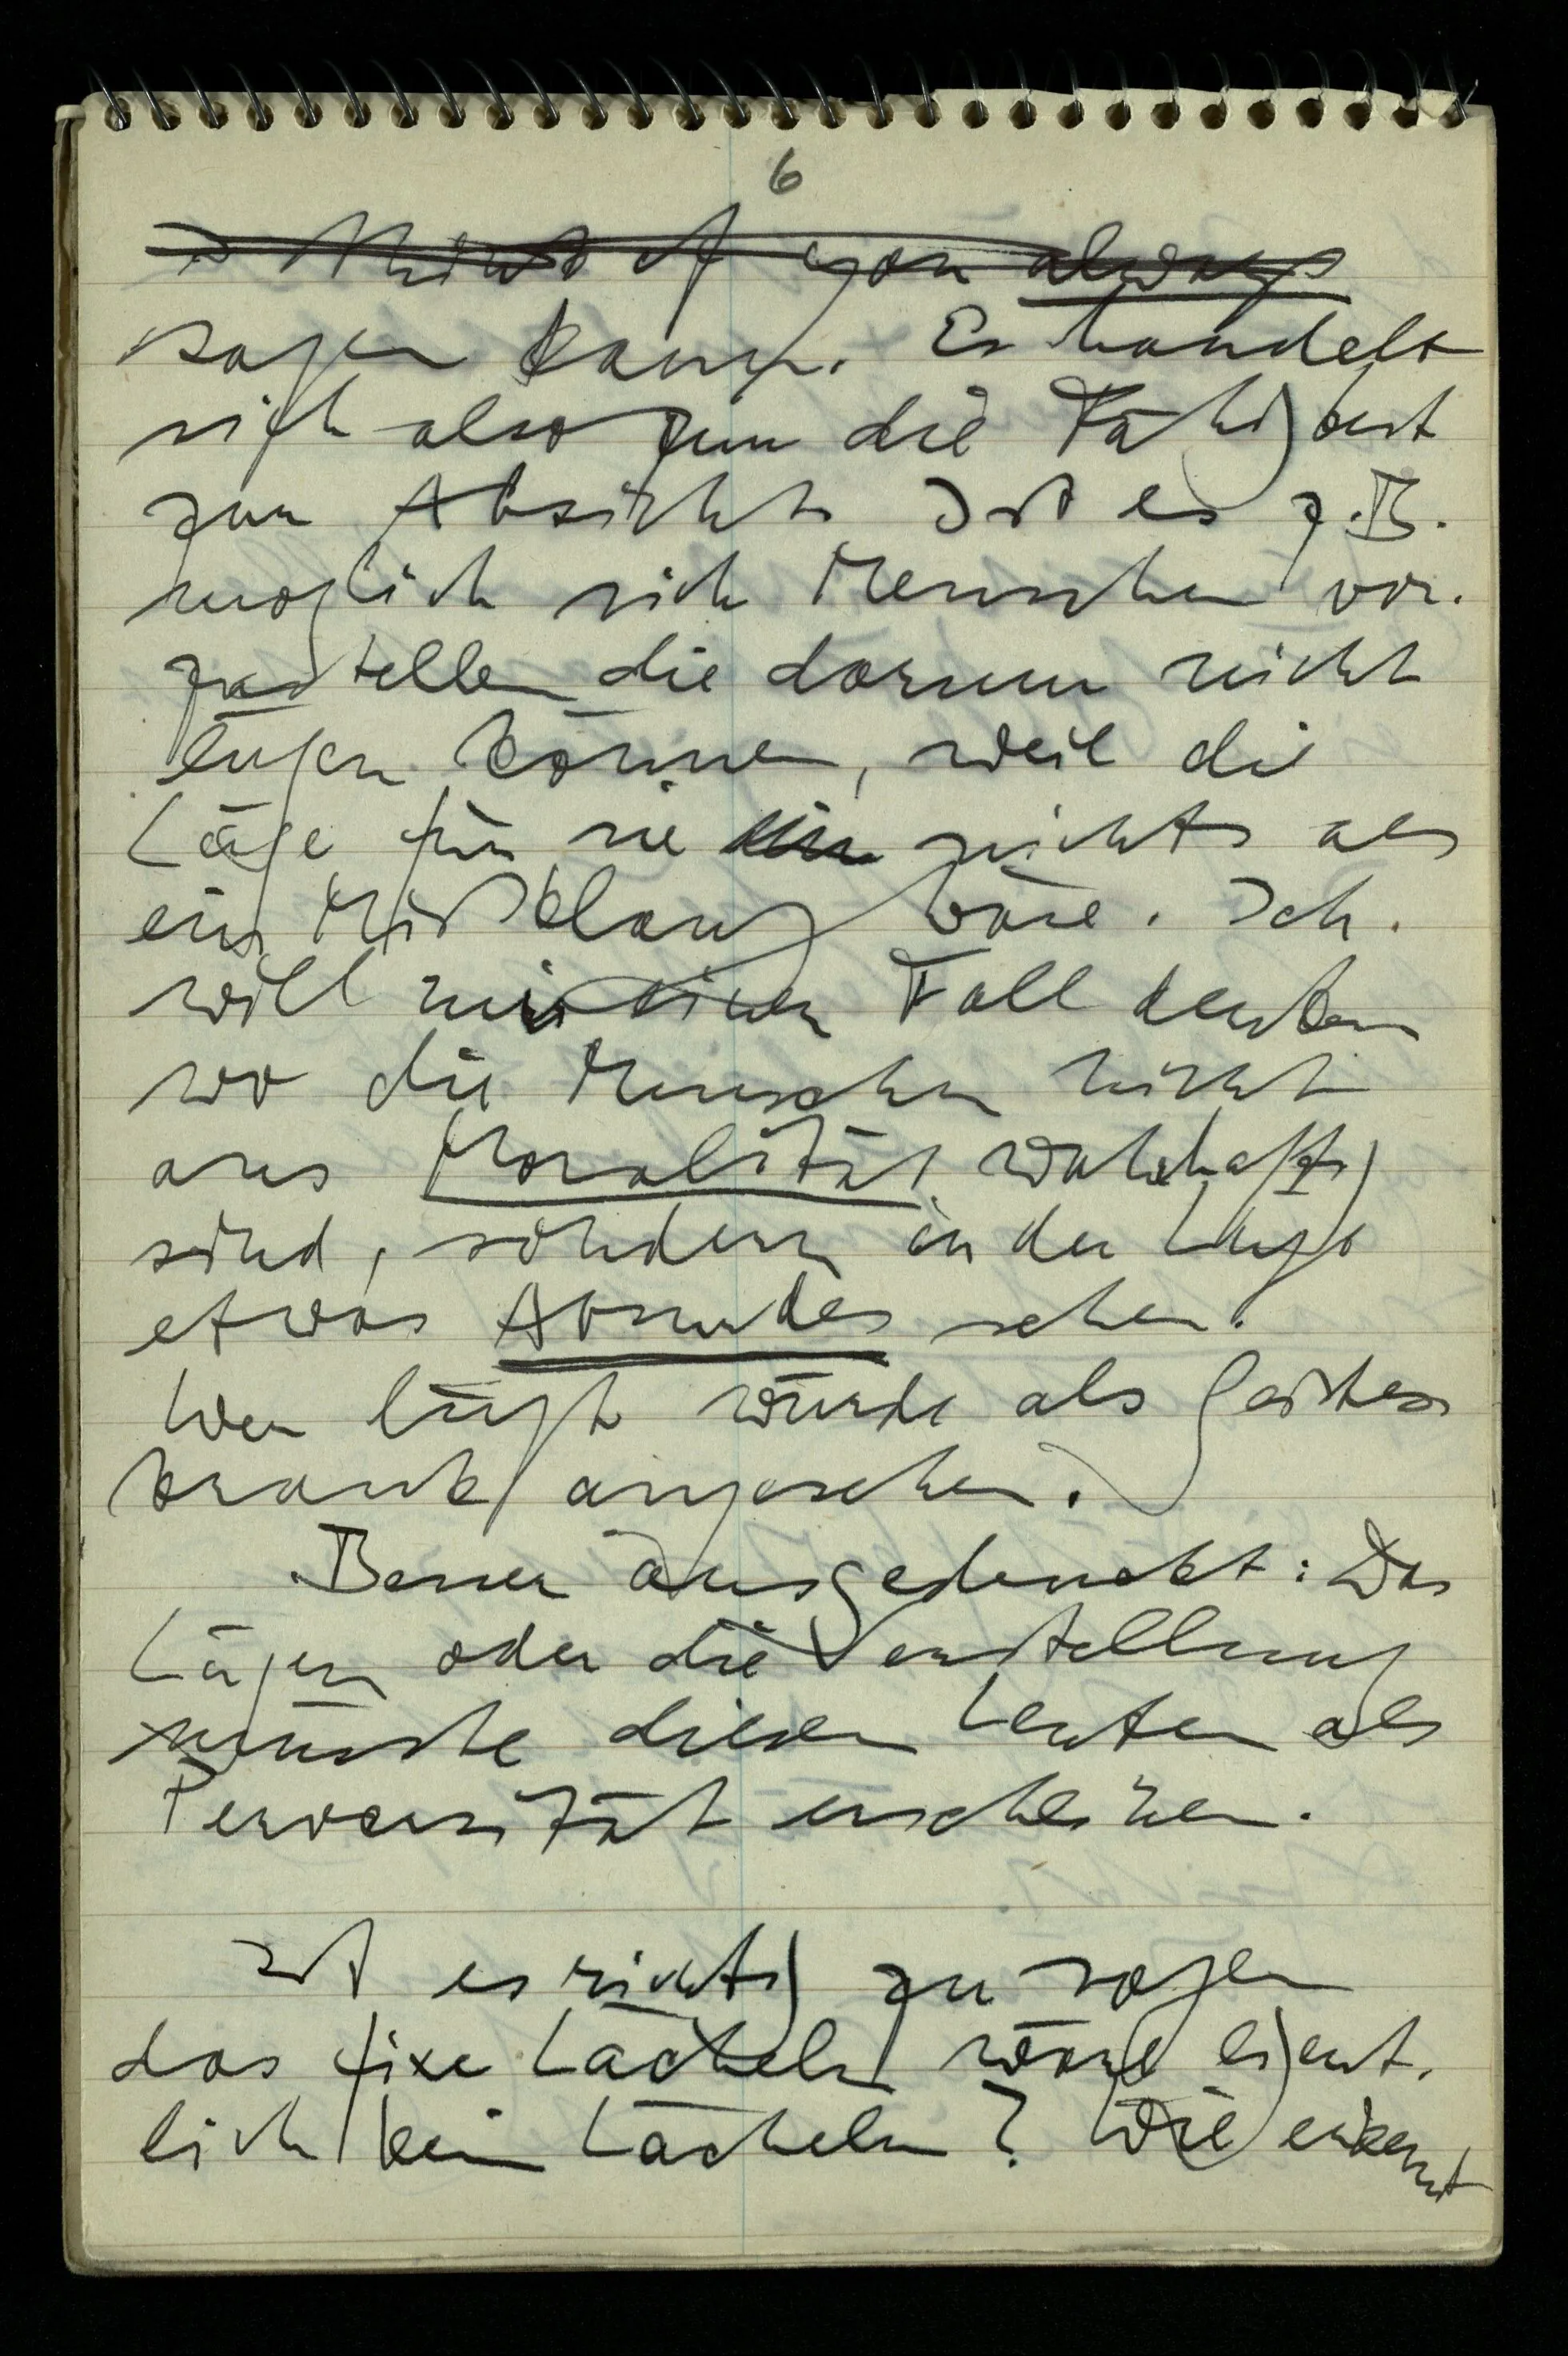 6
I think of you always
sagen kann. Es handelt
sich also um die Fähigkeit
zur Absicht. Ist es z.B.
möglich sich Menschen vor-
zustellen die darum nicht
lügen können, weil die
Lüge für sie ein nichts als
ein Mißklang wäre. Ich
will mir einen Fall denken
wo die Menschen nicht
aus Moralität wahrhaftig
sind, sondern in der Lüge
etwas Absurdes sehen.
Wer lügt würde als geistes-
krank angesehen.
Besser ausgedruckt: Das
Lügen oder die Verstellung
müsste diesen Leuten als
Perversität erscheinen.
Ist es richtig zu sagen
das fixe Lächeln wäre eigent-
lich kein Lächeln? Wie erkennt